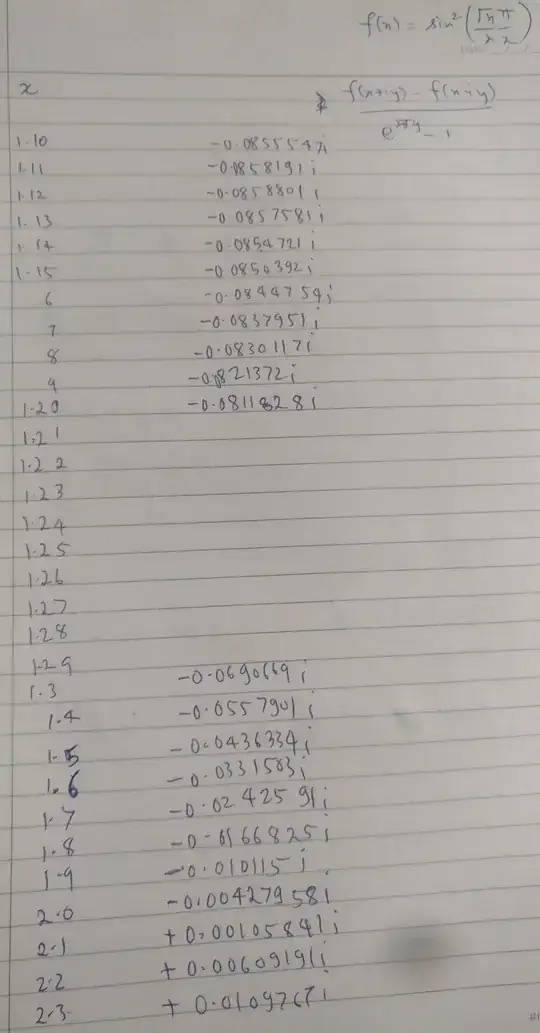 f(x) = sin² (√x/x π/2)
x f(x+iy) - f(x-iy) / e^2πy - 1
1.10 -0.0855547i
1.11 -0.0858191i
1.12 -0.0858801i
1.13 -0.0857581i
1.14 -0.0854721i
1.15 -0.0850392i
6 -0.0844754i
7 -0.0837951i
8 -0.0830117i
9 -0.0821372i
1.20 -0.0811828i
1.21
1.22
1.23
1.24
1.25
1.26
1.27
1.28
1.29
1.3 -0.0690669i
1.4 -0.0557901i
1.5 -0.0436334i
1.6 -0.0331503i
1.7 -0.0242591i
1.8 -0.0166825i
1.9 -0.010115i
2.0 -0.00427958i
2.1 +0.00105841i
2.2 +0.00609191i
2.3 +0.0109767i